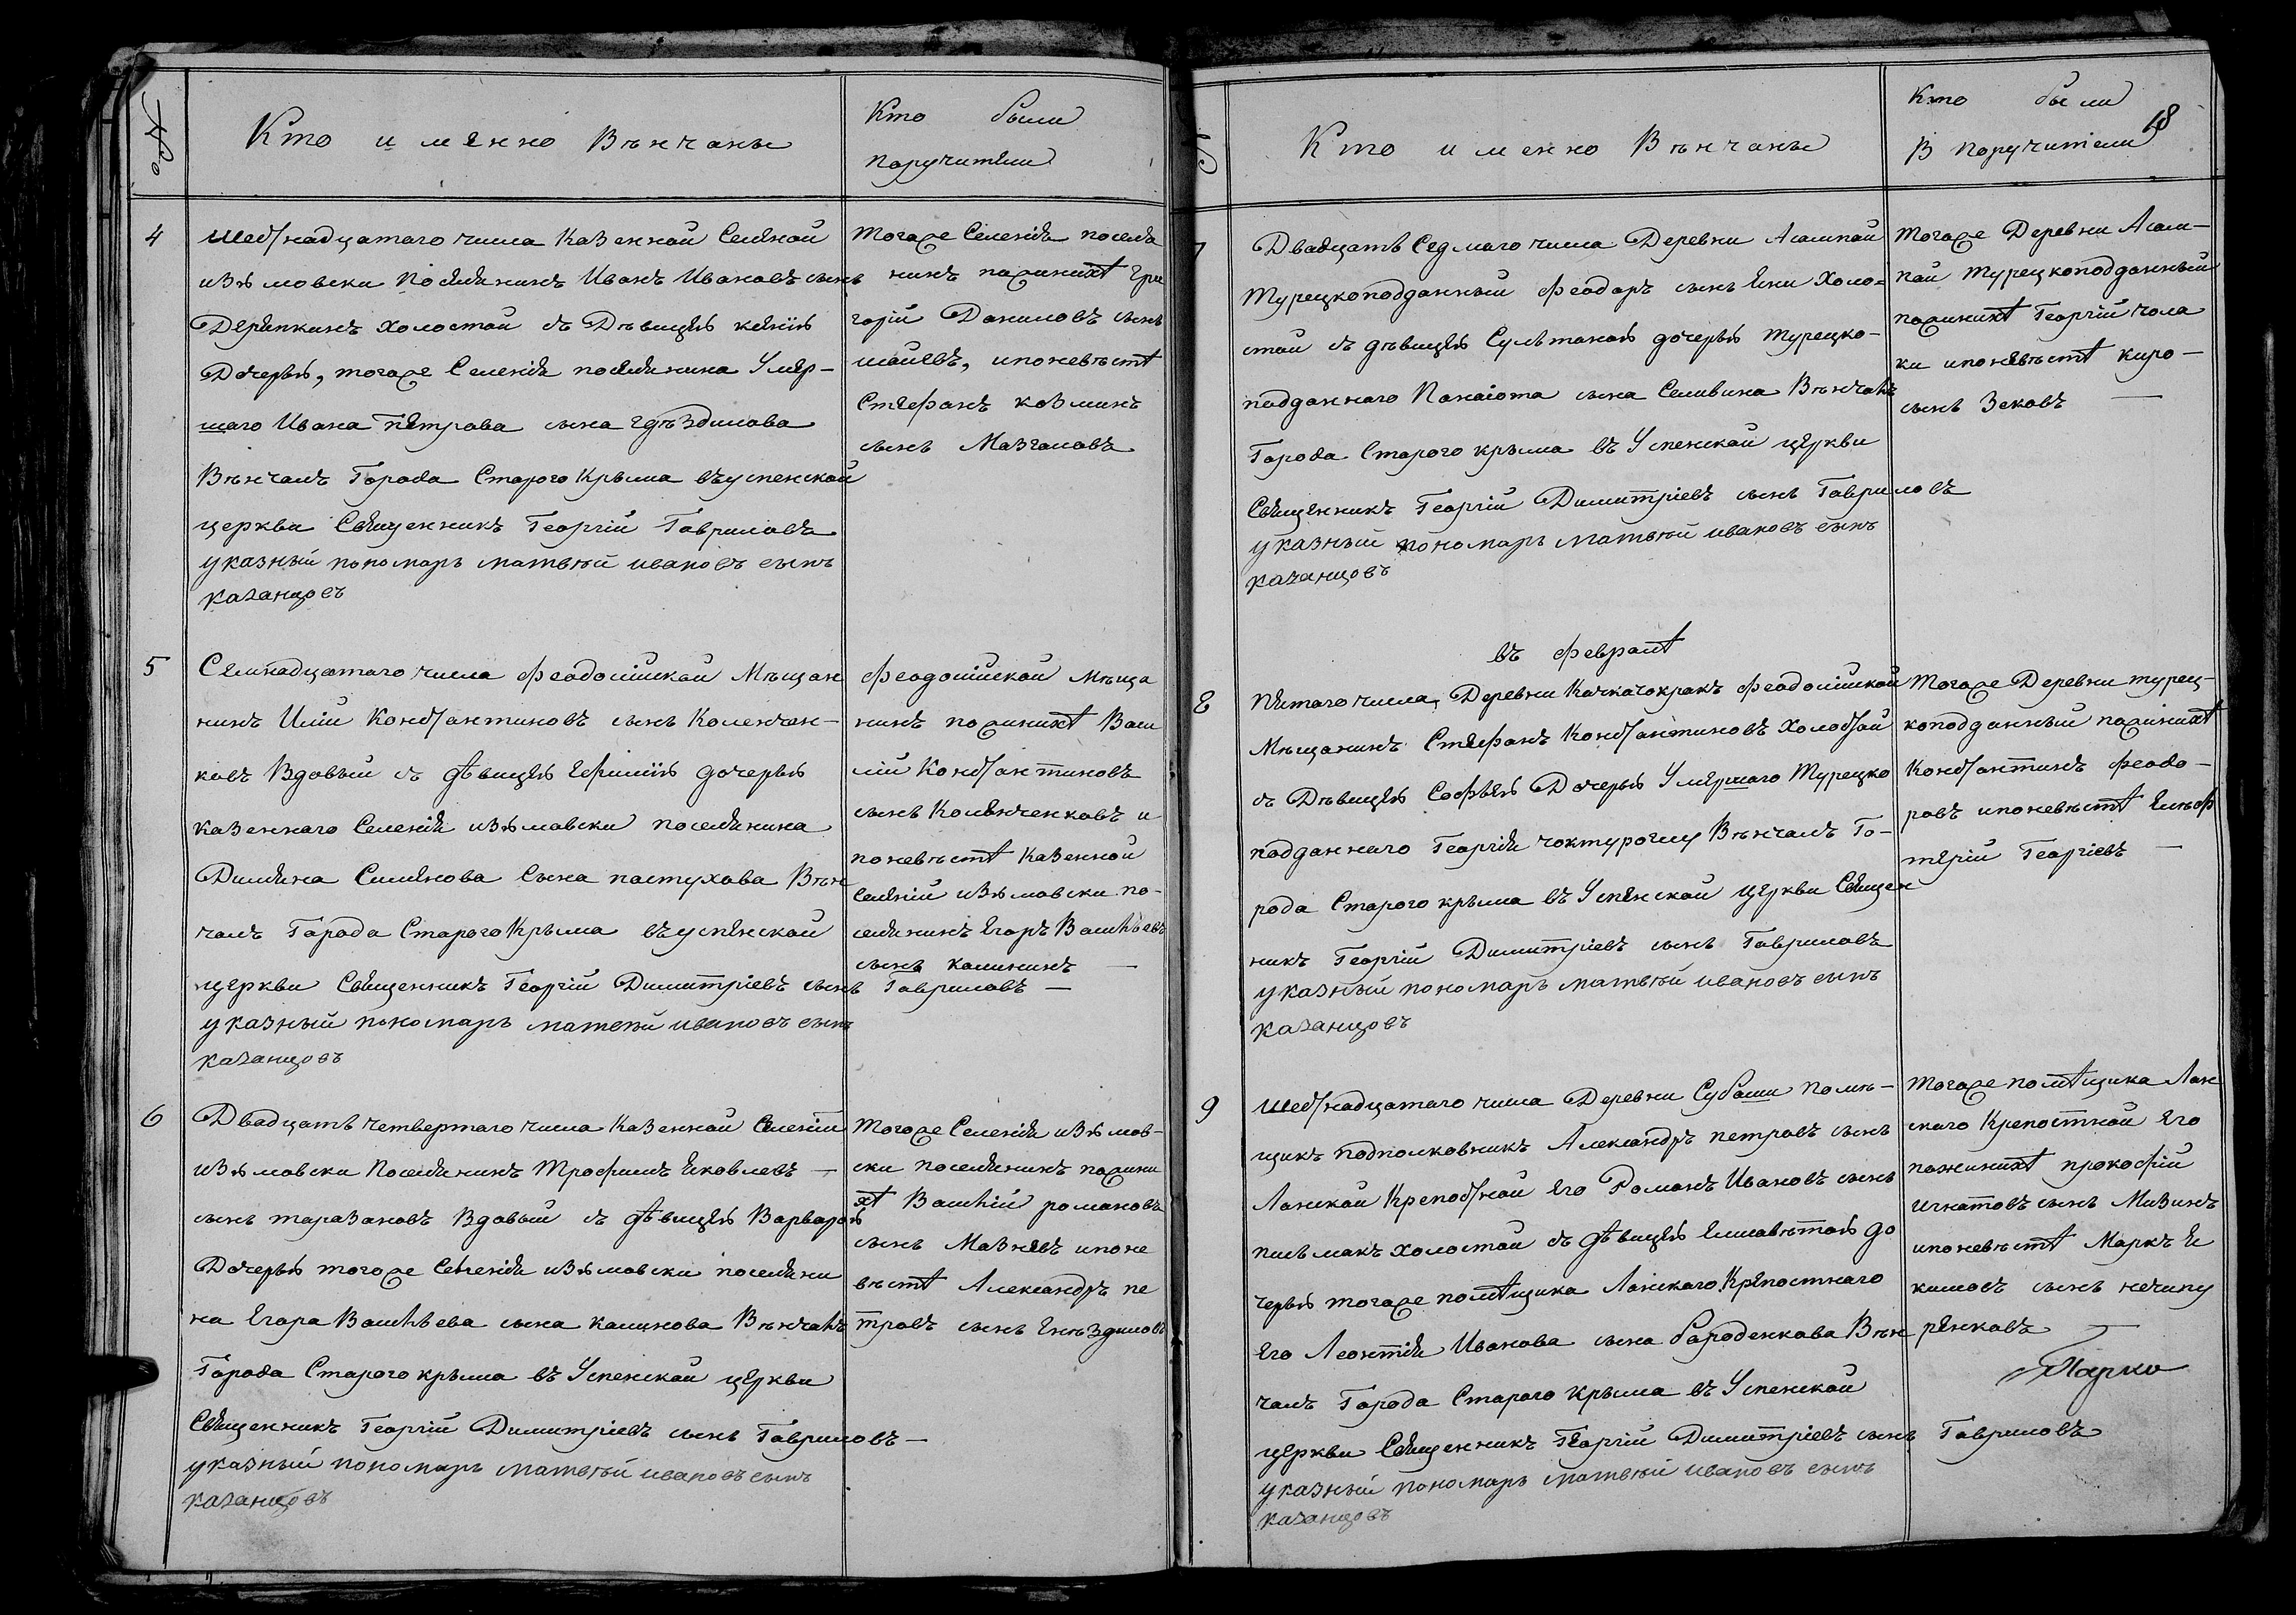 №
Кто именно Вѣнчаны
Кто были
поручители
4
Шестнадцатаго числа Казенной Селеной
изюмовски Поселянинъ Иванъ Ивановъ сынъ
Дерепкинъ холостой съ Дѣвицею
Дочерью, тогоже Селенія поселянина Умер-
шаго Ивана Петрова сына
Вѣнчалъ Города Старого Крыма въ успенской
церкви Священникъ Георгій Гавриловъ
указный пономарь матвѣй ивановъ сынъ
казанцовъ
Тогоже Селенія поселя
нинъ пожинихѣ Гри
горій Даниловъ сынъ
, ипоневѣстѣ
Стефанъ козминъ
сынъ Мазгановъ
5
Семнадцатаго числа Феодосійской Мѣщан
нинъ Илій Константиновъ сынъ Коленчен-
ковъ Вдовый съ дѣвицею Ефиміею дочерью
казеннаго Селенія изюмовски поселянина
Симянова Сына пастухова Вѣн
чалъ Города Старого Крыма въ успенской
церкви Священникъ Георгій Димитріевъ сынъ Гавриловъ —
указный пономарь матвѣй ивановъ сынъ
казанцовъ
Феодосійской мѣща
нинъ пожинихѣ Васи
лій Константиновъ
сынъ Коленченковъ и
поневѣстѣ казенной
Селеній изюмовски по-
селянинъ Егоръ Васильевъ
сынъ калининъ —
6
Двадцать четвертаго числа Казенной Селеніи
изюмовски Поселянинъ Трофимъ Яковлевъ —
сынъ таразановъ Вдовый съ дѣвицею Варварою
Дочерью тогоже Селенія изюмовски поселяни
на Егора Васильева сына калинова Вѣнчалъ
Города Старого крыма въ Успенской церкви
Священникъ Георгій Димитріевъ сынъ Гавриловъ —
указный пономарь матвѣй ивановъ сынъ
казанцовъ
Тогоже Селенія изюмов-
ски поселянинъ пожини
хѣ Василій романовъ
сынъ Мазневъ ипоне
вѣстѣ Александръ пе
тровъ сынъ Гнѣздиловъ
№
Кто именно Вѣнчаны
Кто были
В поручители
18
7
Двадцать Седмаго числа Деревни Асанпай
Турецкоподданный Феодоръ сынъ Яни Холо-
стой съ дѣвицею Султаною дочерью турецко-
подданнаго Панаіота сына Селивина Вѣнчалъ
Города Старого крыма въ Успенской церкви
Священникъ Георгій Димитріевъ сынъ Гавриловъ
указный пономарь матвѣй ивановъ сынъ
казанцовъ
Тогоже Деревни Асан-
пай турецкоподданный
пожинихѣ Георгій чола
ки ипоневѣстѣ киро —
сынъ Зековъ —
въ Февралѣ
8
Пятаго числа, Деревни Качкачокракъ Феодосійской
Мѣщанинъ Стефанъ Константиновъ Холостой
съ Дѣвицею Софьею Дочерью Умершаго Турецко
подданнаго Георгія чоктуроглу Вѣнчалъ Го-
рода Старого крыма въ Успенской церкви Священ
никъ Георгій Димитріевъ сынъ Гавриловъ
указный пономарь матвѣй ивановъ сынъ
казанцовъ
Тогоже Деревни турец-
коподданный пожинихѣ
Константинъ Феодо-
ровъ ипоневѣстѣ Елеф
терій Георгіевъ —
9
Шестнадцатаго числа Деревни Субаши помѣ-
щикъ подполковникъ Александръ петровъ сынъ
Ланской Крепостной Его Романъ Ивановъ сынъ
письмакъ холостой съ дѣвицею Елисаветою до
черью тогоже помѣщика Ланскаго Крепостнаго
Его Леонтія Иванова сына Бароденкова Вѣн
чалъ Города Старого Крыма въ Успенской
церкви Священникъ Георгій Димитріевъ сынъ Гавриловъ
указный пономарь матвѣй ивановъ сынъ
казанцовъ
Тогоже помѣщика Лан
скаго Крепостной Его
пожинихѣ прокофій
игнатовъ сынъ Мизинъ
ипоневѣстѣ Маркъ Я
кимовъ сынъ нечипу
ренковъ —